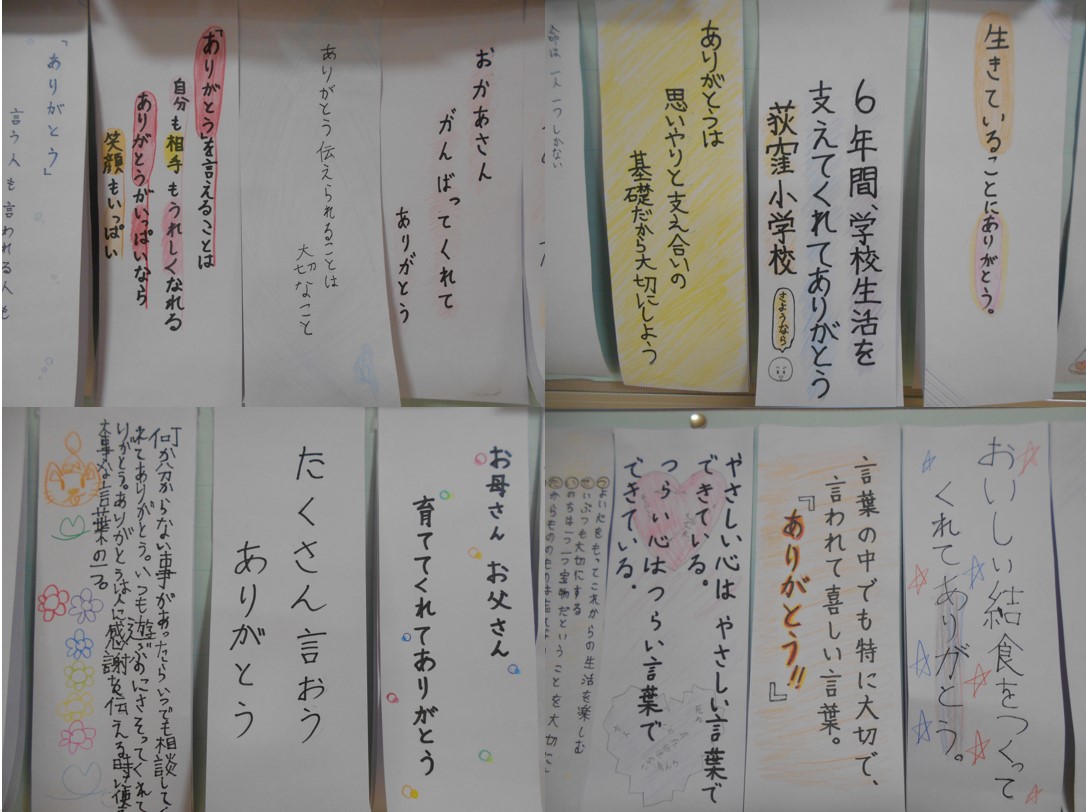 おかあさん
がんばってくれて
ありがとう
ありがとう伝えられることは
大切なこと
「ありがとう」を言えることは
自分も相手もうれしくなれる
ありがとうがいっぱいなら
笑顔もいっぱい
『ありがとう』
言う人も言われる人も
生きていることにありがとう。
6年間、学校生活を
支えてくれてありがとう
荻窪小学校
さようなら
ありがとうは
思いやりと支え合いの
基礎だから大切にしよう
命は一人一つしかない
お母さん お父さん
育ててくれてありがとう
たくさん言おう
ありがとう
何か分からない事があったらいつでも相談してく
来てありがとう。いつも遊ぶのにさそってくれて
りがとう。ありがとうは人に感謝を伝える時に使
大事な言葉の一つ。
おいしい結食をつくって
くれてありがとう。
言葉の中でも特に大切で、
言われて喜しい言葉。
『ありがとう!!』
やさしい心は やさしい言葉で
できている。
つらい心は つらい言葉で
できている。
つよい心をもってこれからの生活を楽しむ
せいぶつも大切にする
いのちは一つ一つ宝物だということを大切に